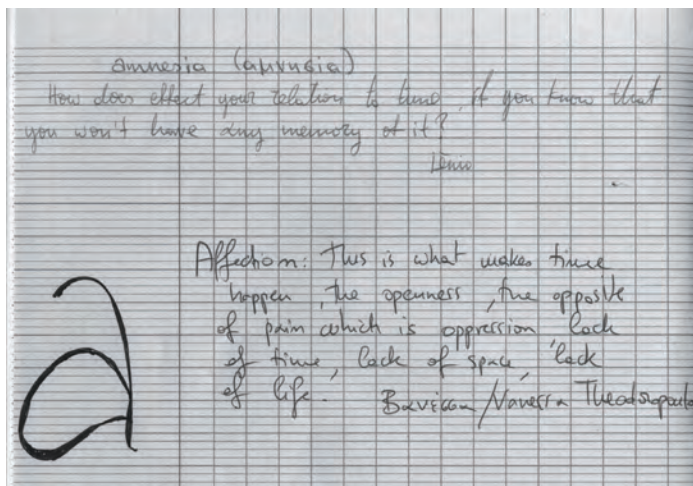 amnesia (αμνησία)
How does effect your relation to time, if you know that
you won't have any memory of it?
a
Affection: This is what makes time
happen, the openness, the opposite
of pain which is oppression, lack
of time, lack of space, lack
of life. Βανέσσα/Vanessa Theodoropoulou